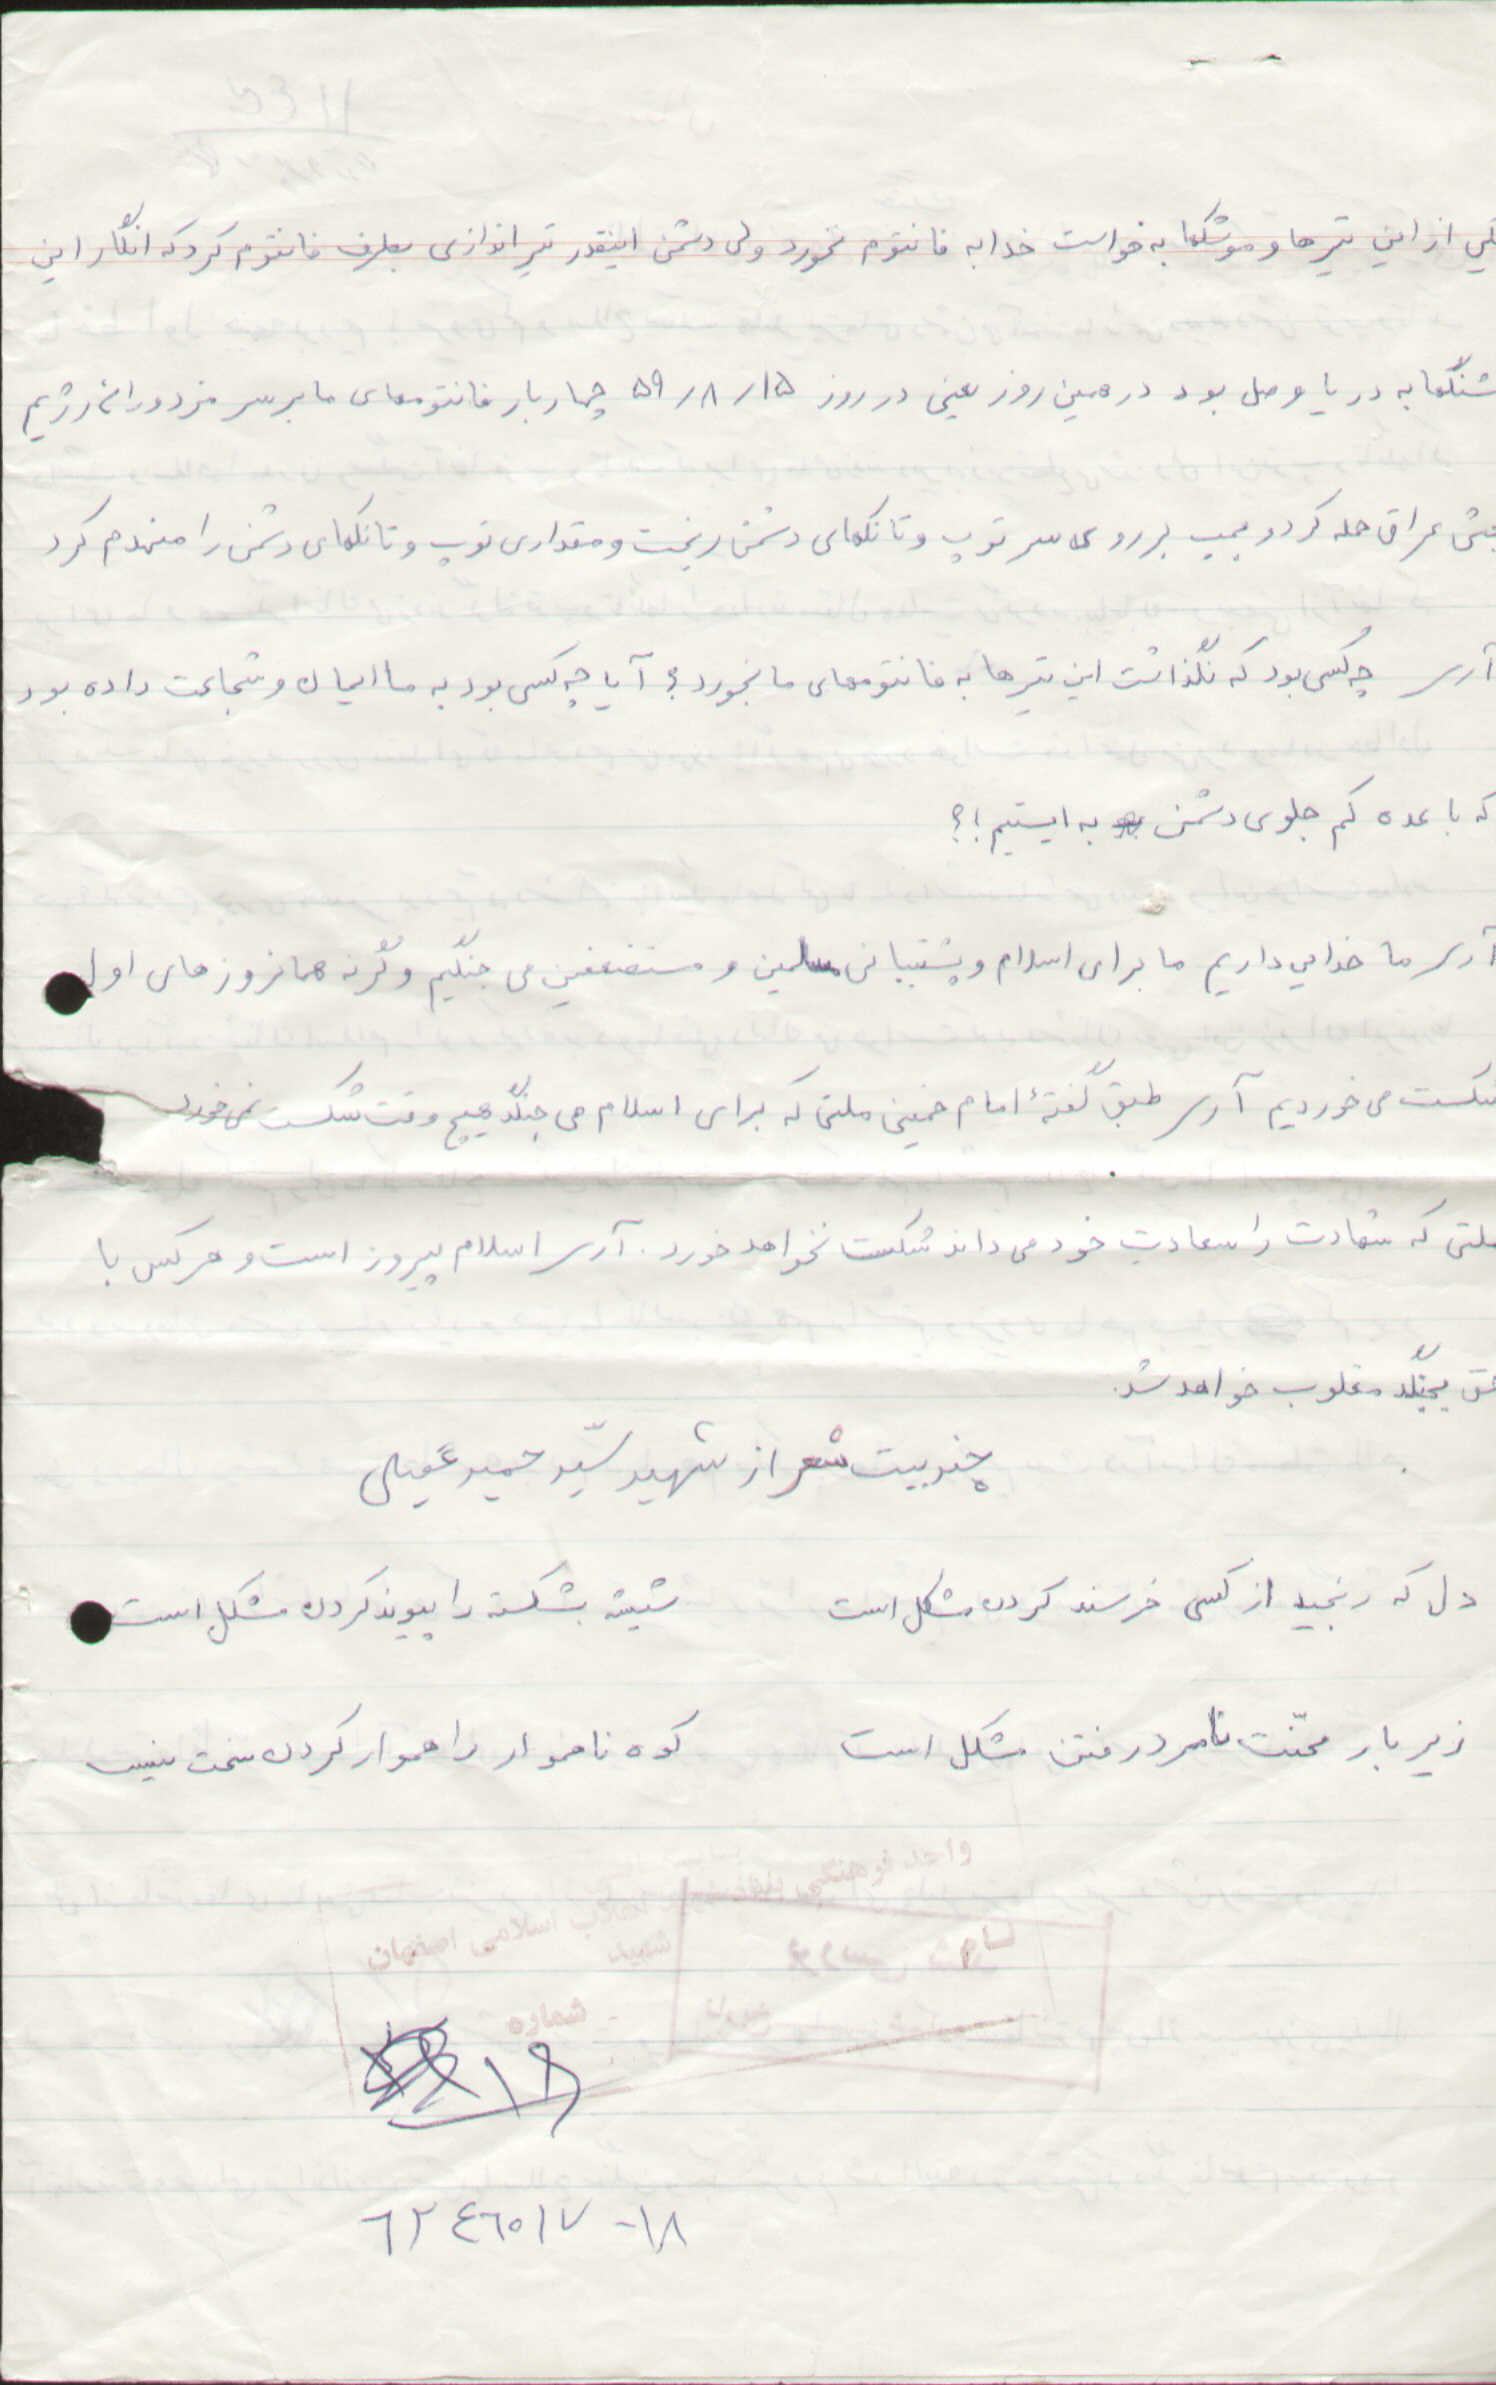 یکی از این تیرها و موشکها به خواست خدا به فانتوم نخورد ولی دشمن اینقدر تیراندازی بطرف فانتوم کرد که انگار این
فشنگها به دریا وصل بود در همین روز یعنی در روز ۱۵/۸/۵۹ چهار بار فانتومهای ما بر سر مزدوران رژیم
بعثی عراق حمله کرد و بمب بر روی سر توپ و تانکهای دشمن ریخت و مقداری توپ و تانکهای دشمن را منهدم کرد
آری چه کسی بود که نگذاشت این تیرها به فانتومهای ما بخورد؟ آیا چه کسی بود به ما ایمان و شجاعت داده بود
که با عده کم جلوی دشمن به ایستیم!؟
آری ما خدایی داریم ما برای اسلام و پشتیبانی مسلمین و مستضعفین می جنگیم وگرنه همانروزهای اول
شکست می خوردیم آری طبق گفتهٔ امام خمینی ملتی که برای اسلام می جنگد هیچ وقت شکست نمی خورد
ملتی که شهادت را سعادت خود می داند شکست نخواهد خورد. آری اسلام پیروز است و هرکس با
حق بجنگد مغلوب خواهد شد.
چند بیت شعر از شهید سیّد حمید عقیلی
دل که رنجید از کسی خرسند کردن مشکل است شیشه بشکسته را پیوند کردن مشکل است
زیر بار محنّت نامرد رفتن مشکل است کوه ناهموار را هموار کردن سخت نیست
واحد فرهنگی بنیاد شهید انقلاب اسلامی اصفهان
شهید
شماره
۱۹
۶۲۴۶۵۱۷-۱۸